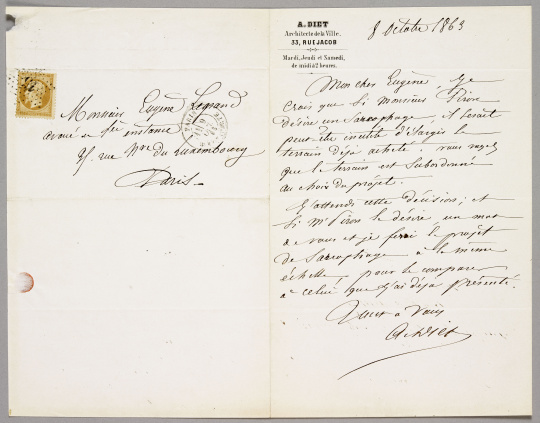 Monsieur Eugène Legrand
avoué en 1re instance
rue Nve du Luxembourg
Paris
A. DIET
Architecte de la Ville.
33, RUE JACOB
Mardi, Jeudi et Samedi,
de midi à 2 heures.
8 Octobre 1863
Mon cher Eugène, Je
crois que si Monsieur Piron
désire un Sarcophage, il serait
peut être inutile d'élargir le
terrain déjà acheté. vous voyez
que le terrain est subordonné
au choix du projet.
J'attends cette décision, et
si Mr Piron le désire un mot
de vous et je ferai le projet
de Sarcophage à la même
échelle, pour le comparer
à celui que j'ai déjà présenté.
Tout à vous
A. Diet